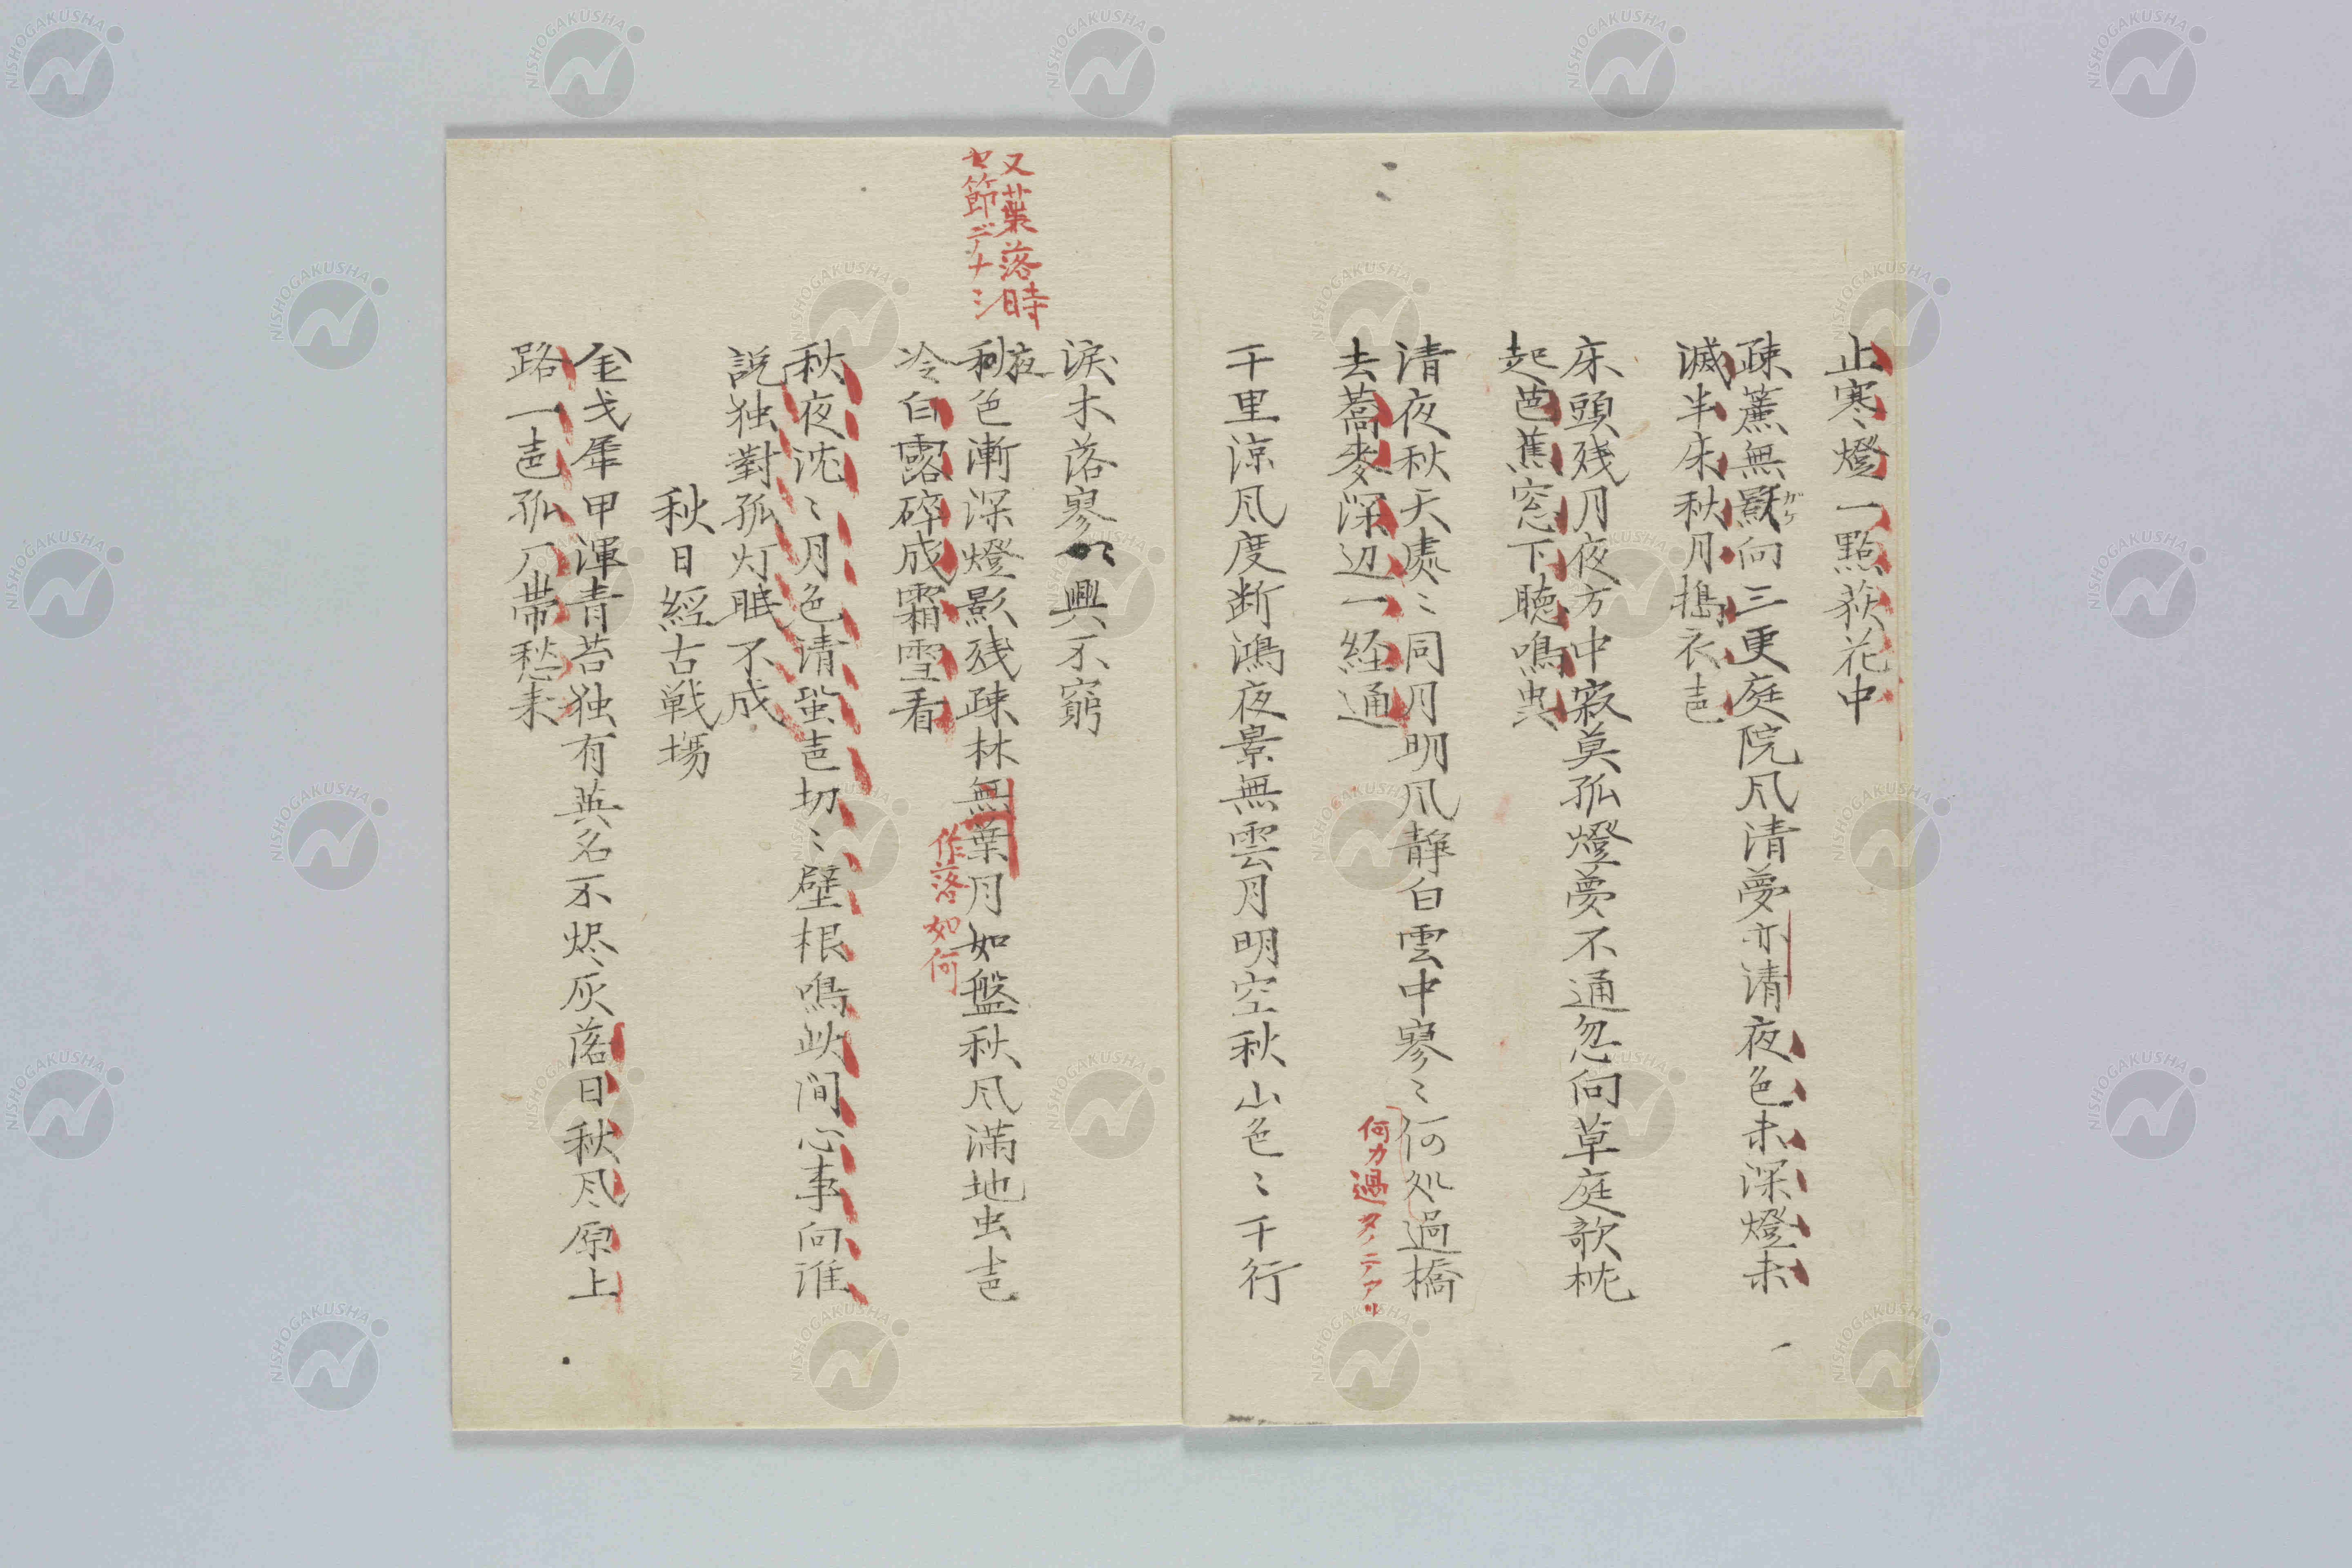 止寒燈一點荻花中
疎簾無獣向三更庭院風清夢亦清夜色未深燈未
滅半床秋月搗衣声
床頭残月夜方中寂莫孤燈夢不通忽向草庭欹枕
起芭蕉窓下聴鳴虫
清夜秋天處〻同月明風静白雲中寥〻何処過橋
何カ過タノニテアリ
去蕎麥深辺一経通
千里凉風度断鴻夜景無雲月明空秋山色〻千行
涙木落寥〻興不窮
又葉落時
セ節デナシ
夜
秋色漸深燈影残疎林無葉月如盤秋風満地虫声
作落如何
冷白露碎成霜雪看
秋夜沈〻月色清蛩声切〻壁根鳴此間心事向誰
説独對孤灯眠不成
秋日經古戦場
金戈犀甲渾青苔独有英名不烬灰落日秋風原上
路一声孤刀帶愁来
NISHOGAKUSHA